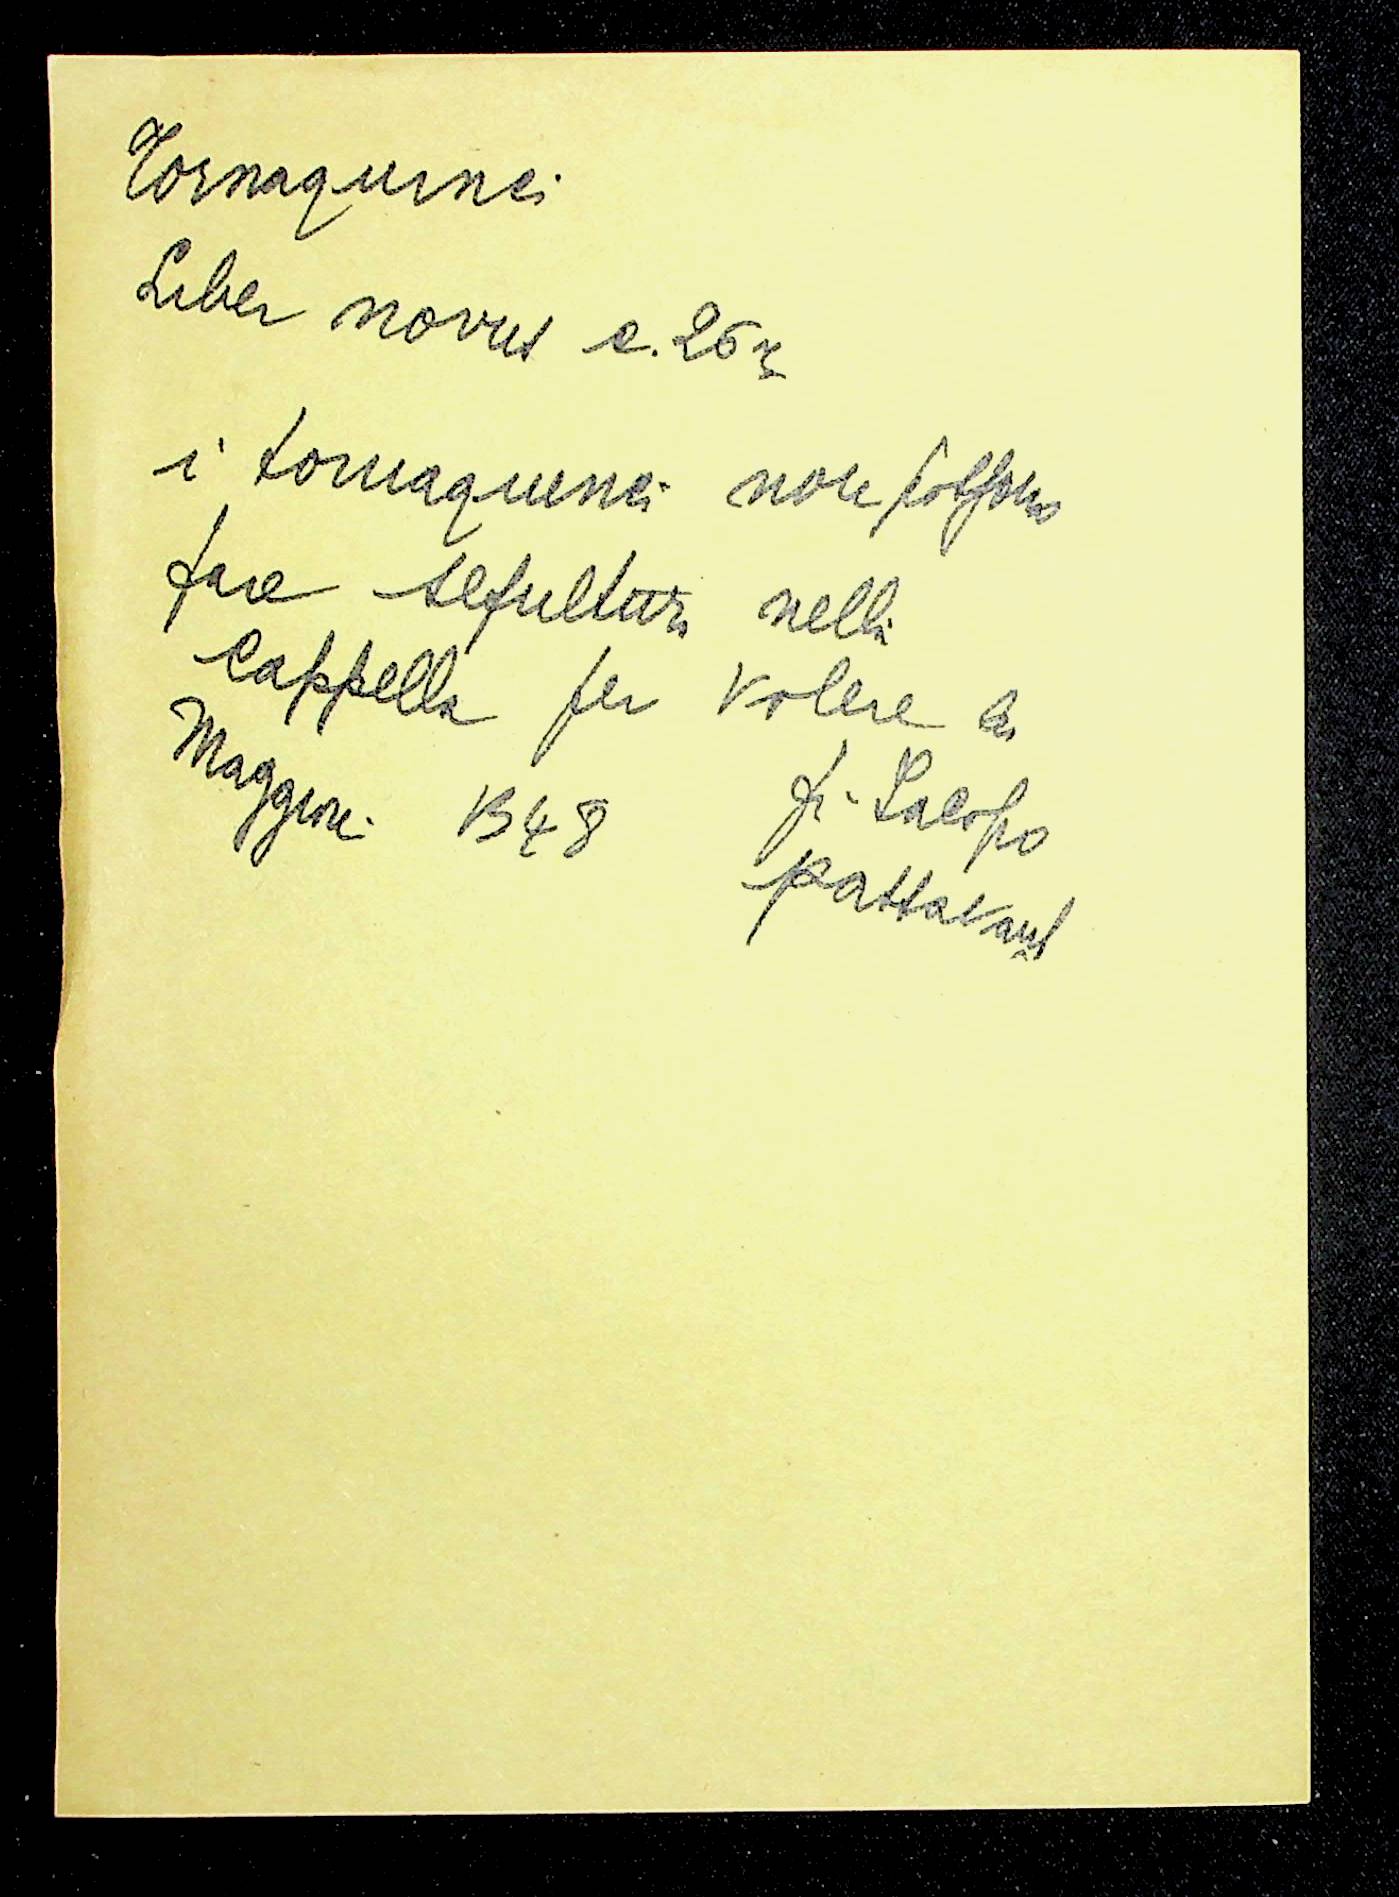 Tornaquinci
Liber novus c. 26 r
i tornaquinci non possono
fare sepultura nella
cappella per volere di
Maggiore 1348 fr. Iacopo
passavanti